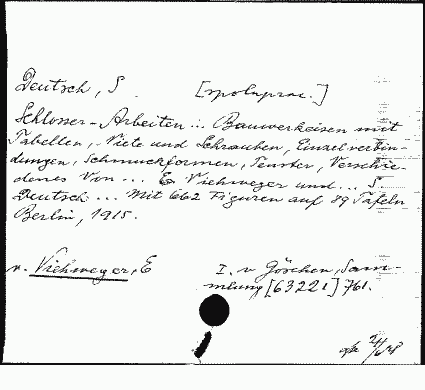 Deutsch, S. [spoluprac.]
Schlosser-Arbeiten ... Bauwerkeisen mit
Tabellen, Niete und Schrauben, Einzelverbin-
dungen, Schmuckformen, Fenster, Verschie-
denes Von ... E. Viehweger und ... S.
Deutsch ... Mit 662 Figuren auf 89 Tafeln
Berlin, 1915.
v. Viehweger, E I. v Göschen, Sam-
mlung [63221] 761.